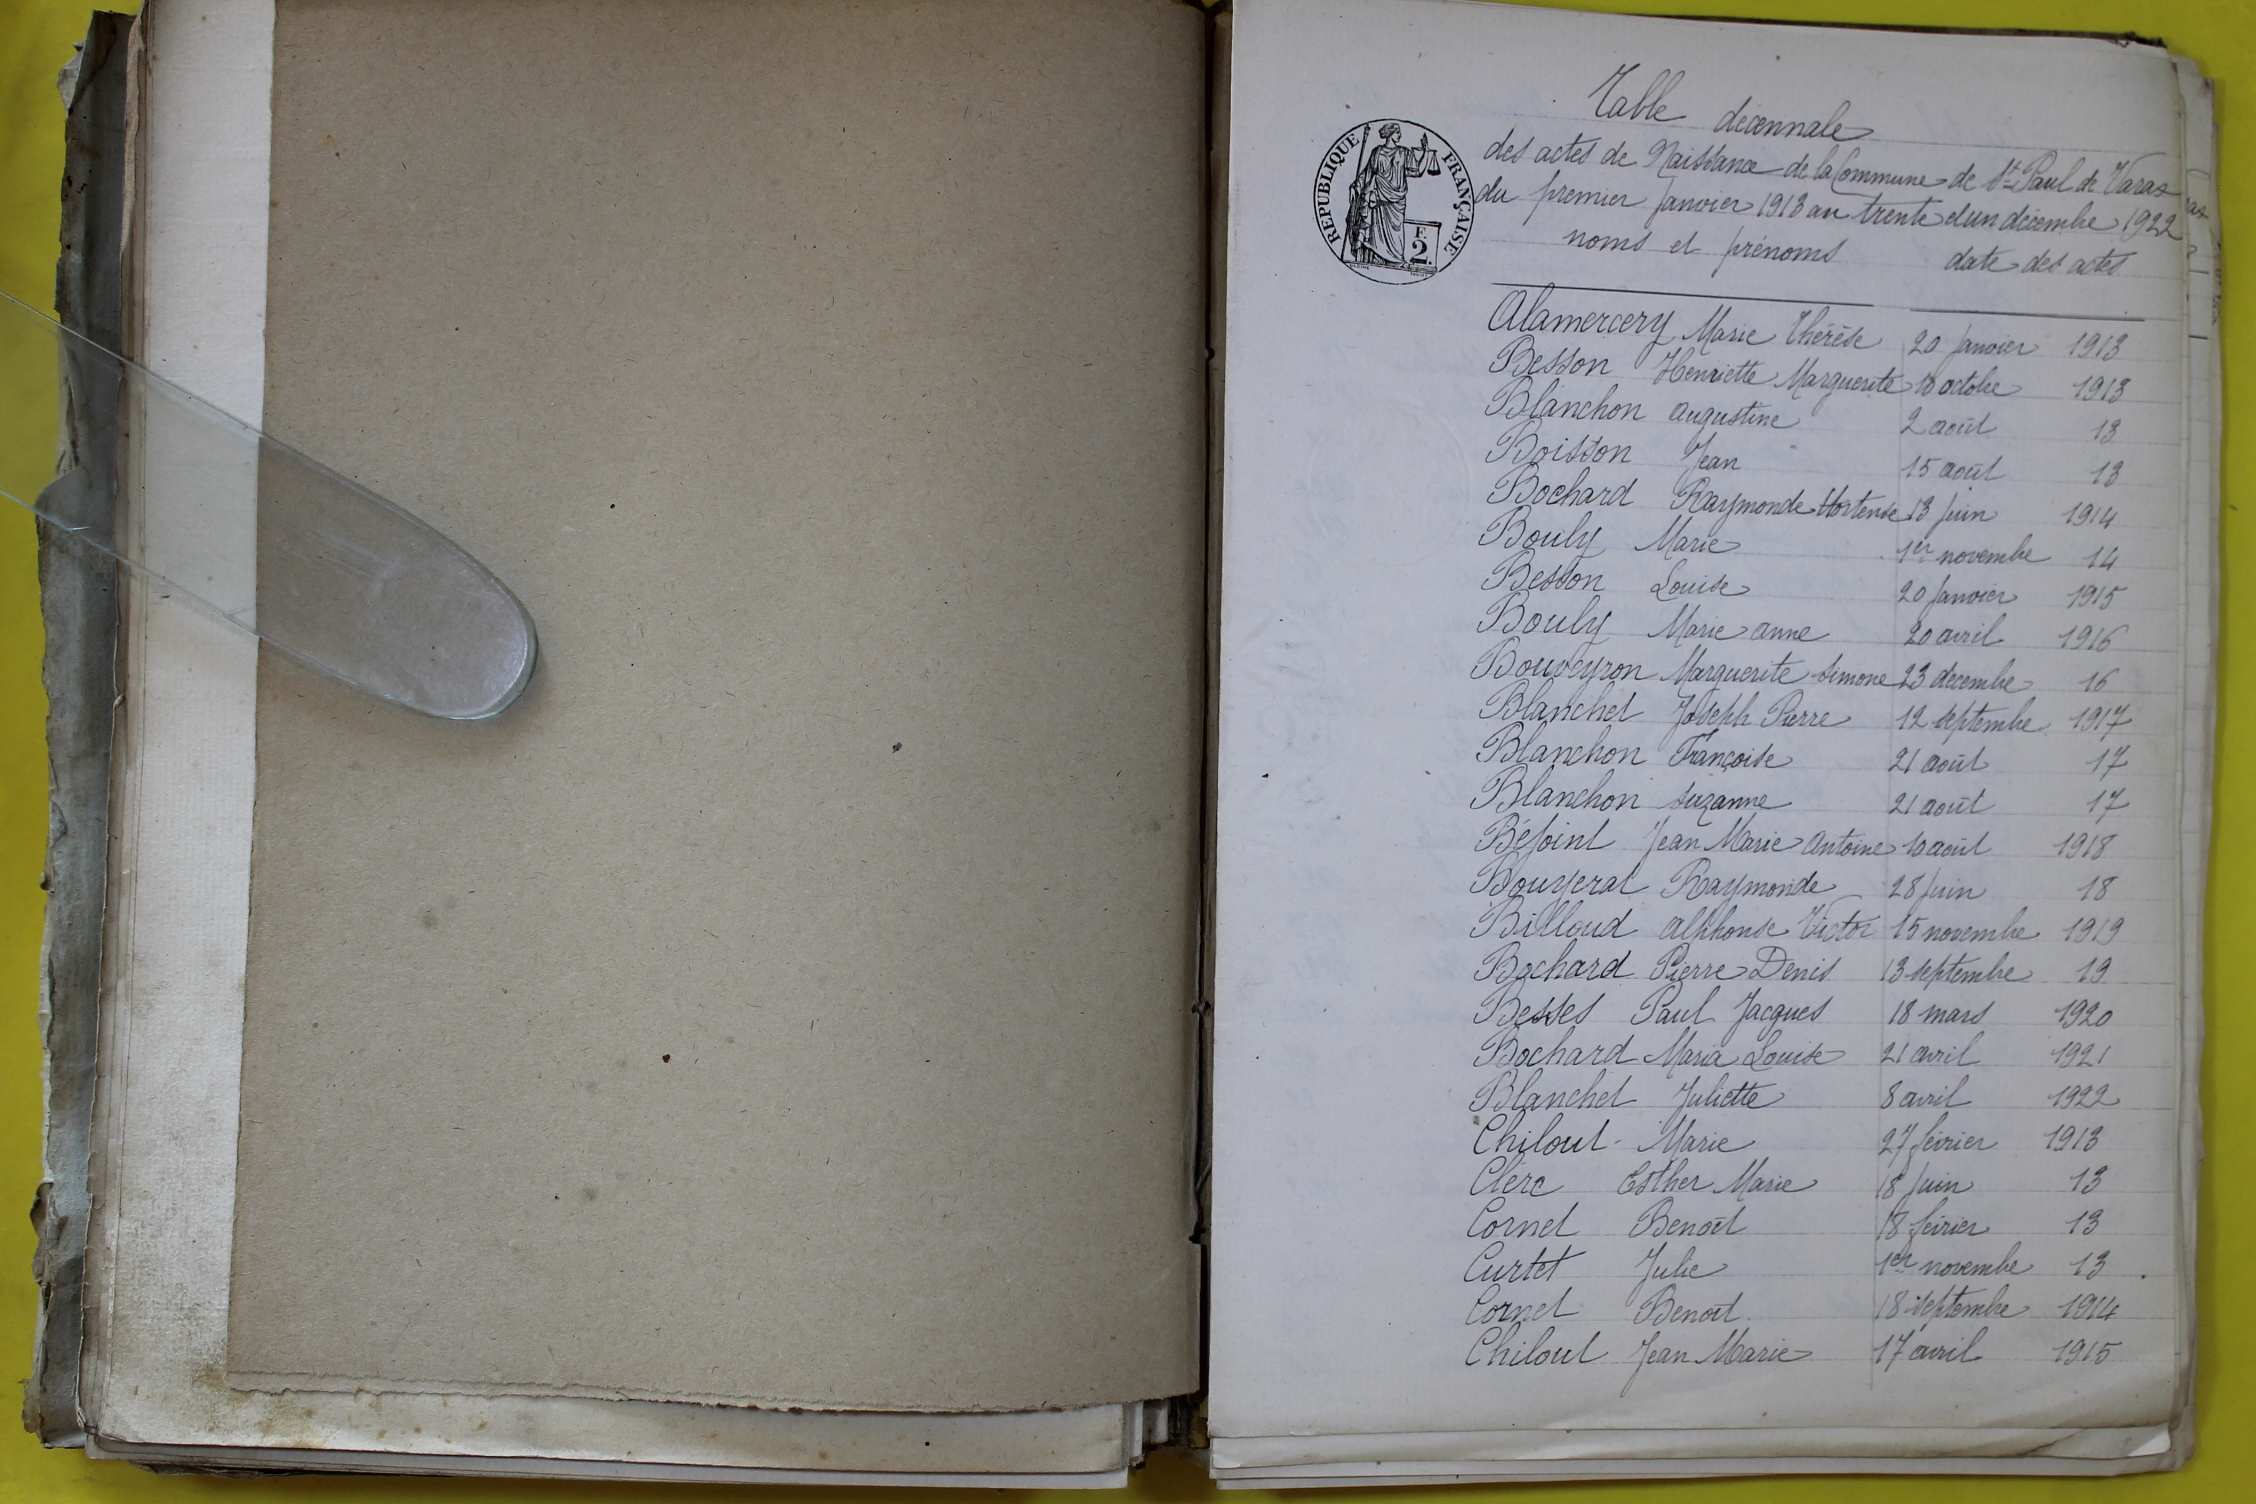 Table décennale
des actes de Naissance de la Commune de St Paul de Varax
du premier Janvier 1913 au trente et un décembre 1922
noms et prénoms date des actes
RÉPUBLIQUE FRANÇAISE
F.
2.
Alamercery Marie Thérèse 20 Janvier 1913
Besson Henriette Marguerite 10 octobre 1913
Blanchon Augustine 2 août 13
Boisson Jean 15 août 13
Bochard Raymonde Hortense 13 Juin 1914
Bouly Marie 1er novembre 14
Besson Louise 20 Janvier 1915
Bouly Marie Anne 20 avril 1916
Bouveyron Marguerite Simone 23 décembre 16
Blanchet Joseph Pierre 12 septembre 1917
Blanchon Françoise 21 août 17
Blanchon Suzanne 21 août 17
Béjoint Jean Marie Antoine 10 août 1918
Bouyerat Raymonde 28 Juin 18
Billoud Alphonse Victor 15 novembre 1919
Bochard Pierre Denis 13 septembre 19
Besses Paul Jacques 18 mars 1920
Bochard Maria Louise 21 avril 1921
Blanchet Juliette 8 avril 1922
Chilout Marie 27 février 1913
Clerc Esther Marie 18 Juin 13
Cornet Benoît 18 février 13
Curtet Julie 1er novembre 13
Cornet Benoît 18 septembre 1914
Chilout Jean Marie 17 avril 1915